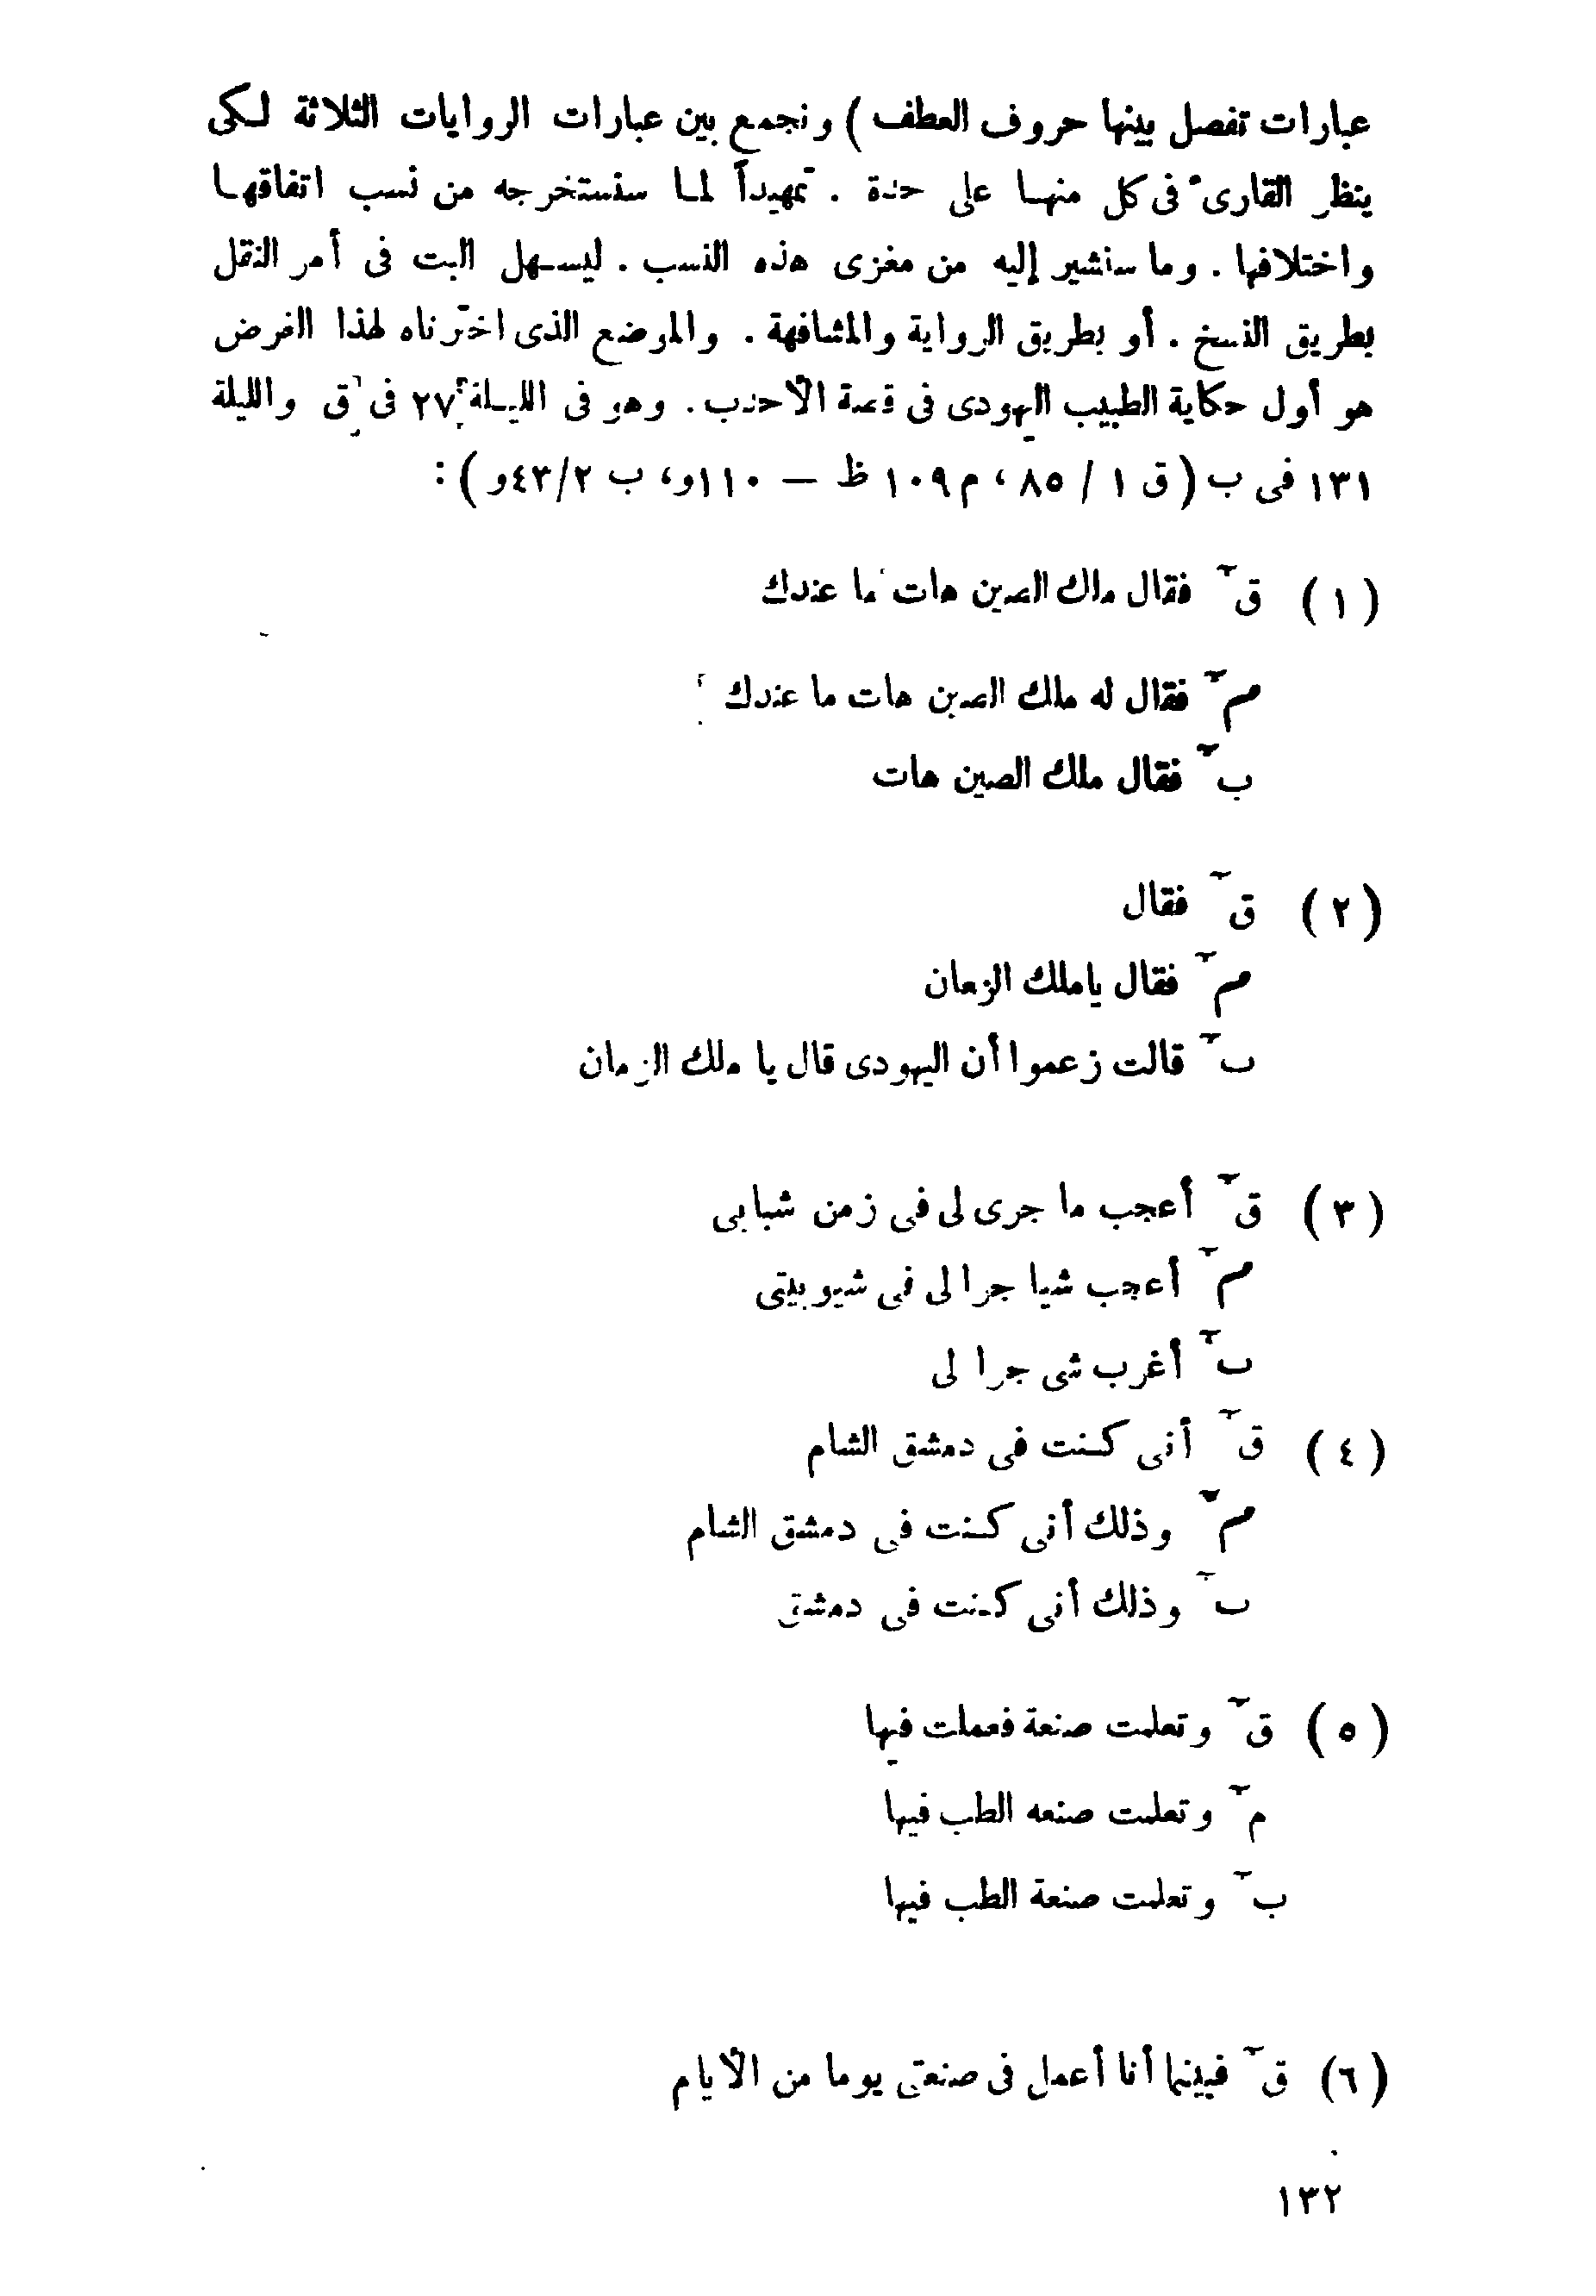 عبارات تفصل بينها حروف العطف ) ونجمع بين عبارات الروايات الثلاثة لكى
ينظر القارىء فى كل منها على حدة . تمهيداً لما سنستخرجه من نسب اتفاقها
واختلافها . وما سنشير إليه من مغزى هذه النسب . ليسهل البت فى أمر النقل
بطريق النسخ . أو بطريق الرواية والمشافهة . والموضع الذى اخترناه لهذا الغرض
هو أول حكاية الطبيب اليهودى فى قصة الأحدب . وهو فى الليلة ٢٧ فى ق والليلة
١٣١ فى ب ( ق ١ / ٨٥ ، م ١٠٩ ظ – ١١٠و، ب ٤٣/٢و ) :
( ١ ) ق ـ فقال ملك الصين هات ما عندك
م ـ فقال له ملك الصين هات ما عندك
ب ـ فقال ملك الصين هات
( ٢ ) ق ـ فقال
م ـ فقال ياملك الزمان
ب ـ قالت زعموا أن اليهودى قال يا ملك الزمان
( ٣ ) ق ـ أعجب ما جرى لى فى زمن شبابى
م ـ أعجب شيا جرا لى فى شيوبيتى
ب ـ أغرب شى جرا لى
( ٤ ) ق ـ أنى كنت فى دمشق الشام
م ـ وذلك أنى كنت فى دمشق الشام
ب ـ وذلك أنى كنت فى دمشق
( ٥ ) ق ـ وتعلمت صنعة فعملت فيها
م ـ وتعلمت صنعه الطب فيها
ب ـ وتعلمت صنعة الطب فيها
( ٦ ) ق ـ فبينما أنا أعمل فى صنعتى يوما من الأيام
١٣٢